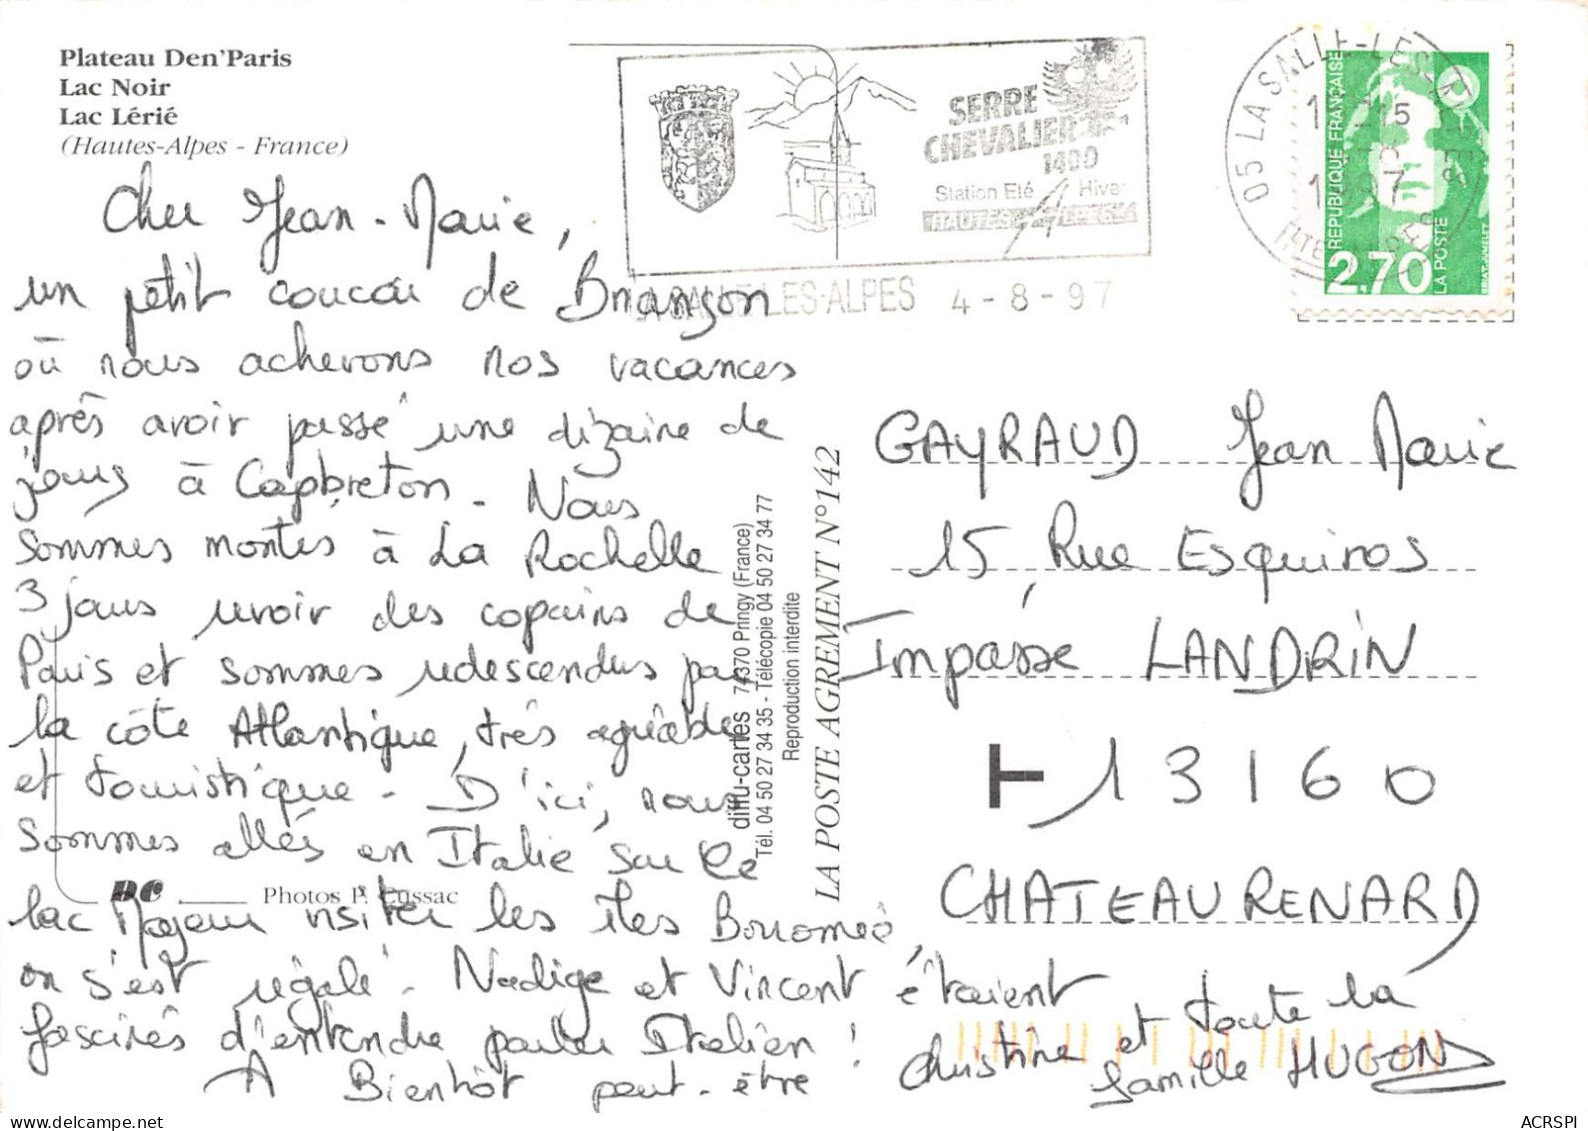 Plateau Den'Paris
Lac Noir
Lac Lérié
(Hautes-Alpes - France)
SERRE
CHEVALIER
1400
Station Eté Hiver
HAUTES ALPES
LA SALLE-LES-ALPES 4-8-97
05 LA SALLE-LES-ALPES
HTES ALPES
REPUBLIQUE FRANÇAISE
2,70
LA POSTE
BRIAT-JUMELET
Cher Jean-Marie,
un petit coucou de Briançon
où nous achevons nos vacances
après avoir passé une dizaine de
jours à Capbreton. Nous
sommes montés à La Rochelle
3 jours revoir des copains de
Paris et sommes redescendus par
la côte Atlantique, très agréable
et touristique - D'ici, nous
sommes allés en Italie sur le
lac Majeur visiter les îles Borromée,
on s'est régalé. Nadège et Vincent étaient
fascinés d'entendre parler Italien !
A Bientôt peut-être
Christine et toute la
famille HUGON
GAYRAUD Jean Marie
15, Rue Esquiros
Impasse LANDRIN
13160
CHATEAURENARD
diffu-cartes 74370 Pringy (France)
Tél. 04 50 27 34 35 - Télécopie 04 50 27 34 77
Reproduction interdite
LA POSTE AGREMENT N°142
DC
Photos P. Cussac
ACRSPI